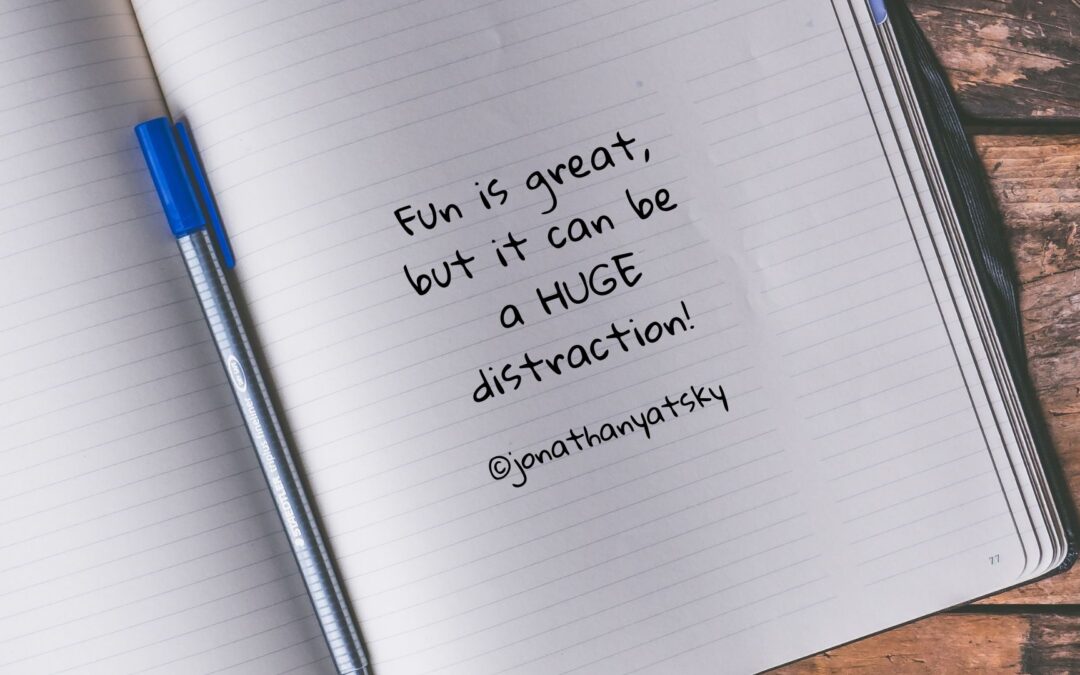 Fun is great,
but it can be
a HUGE
distraction!
©jonathanyatsky
STAEDTLER triplus fineliner
77